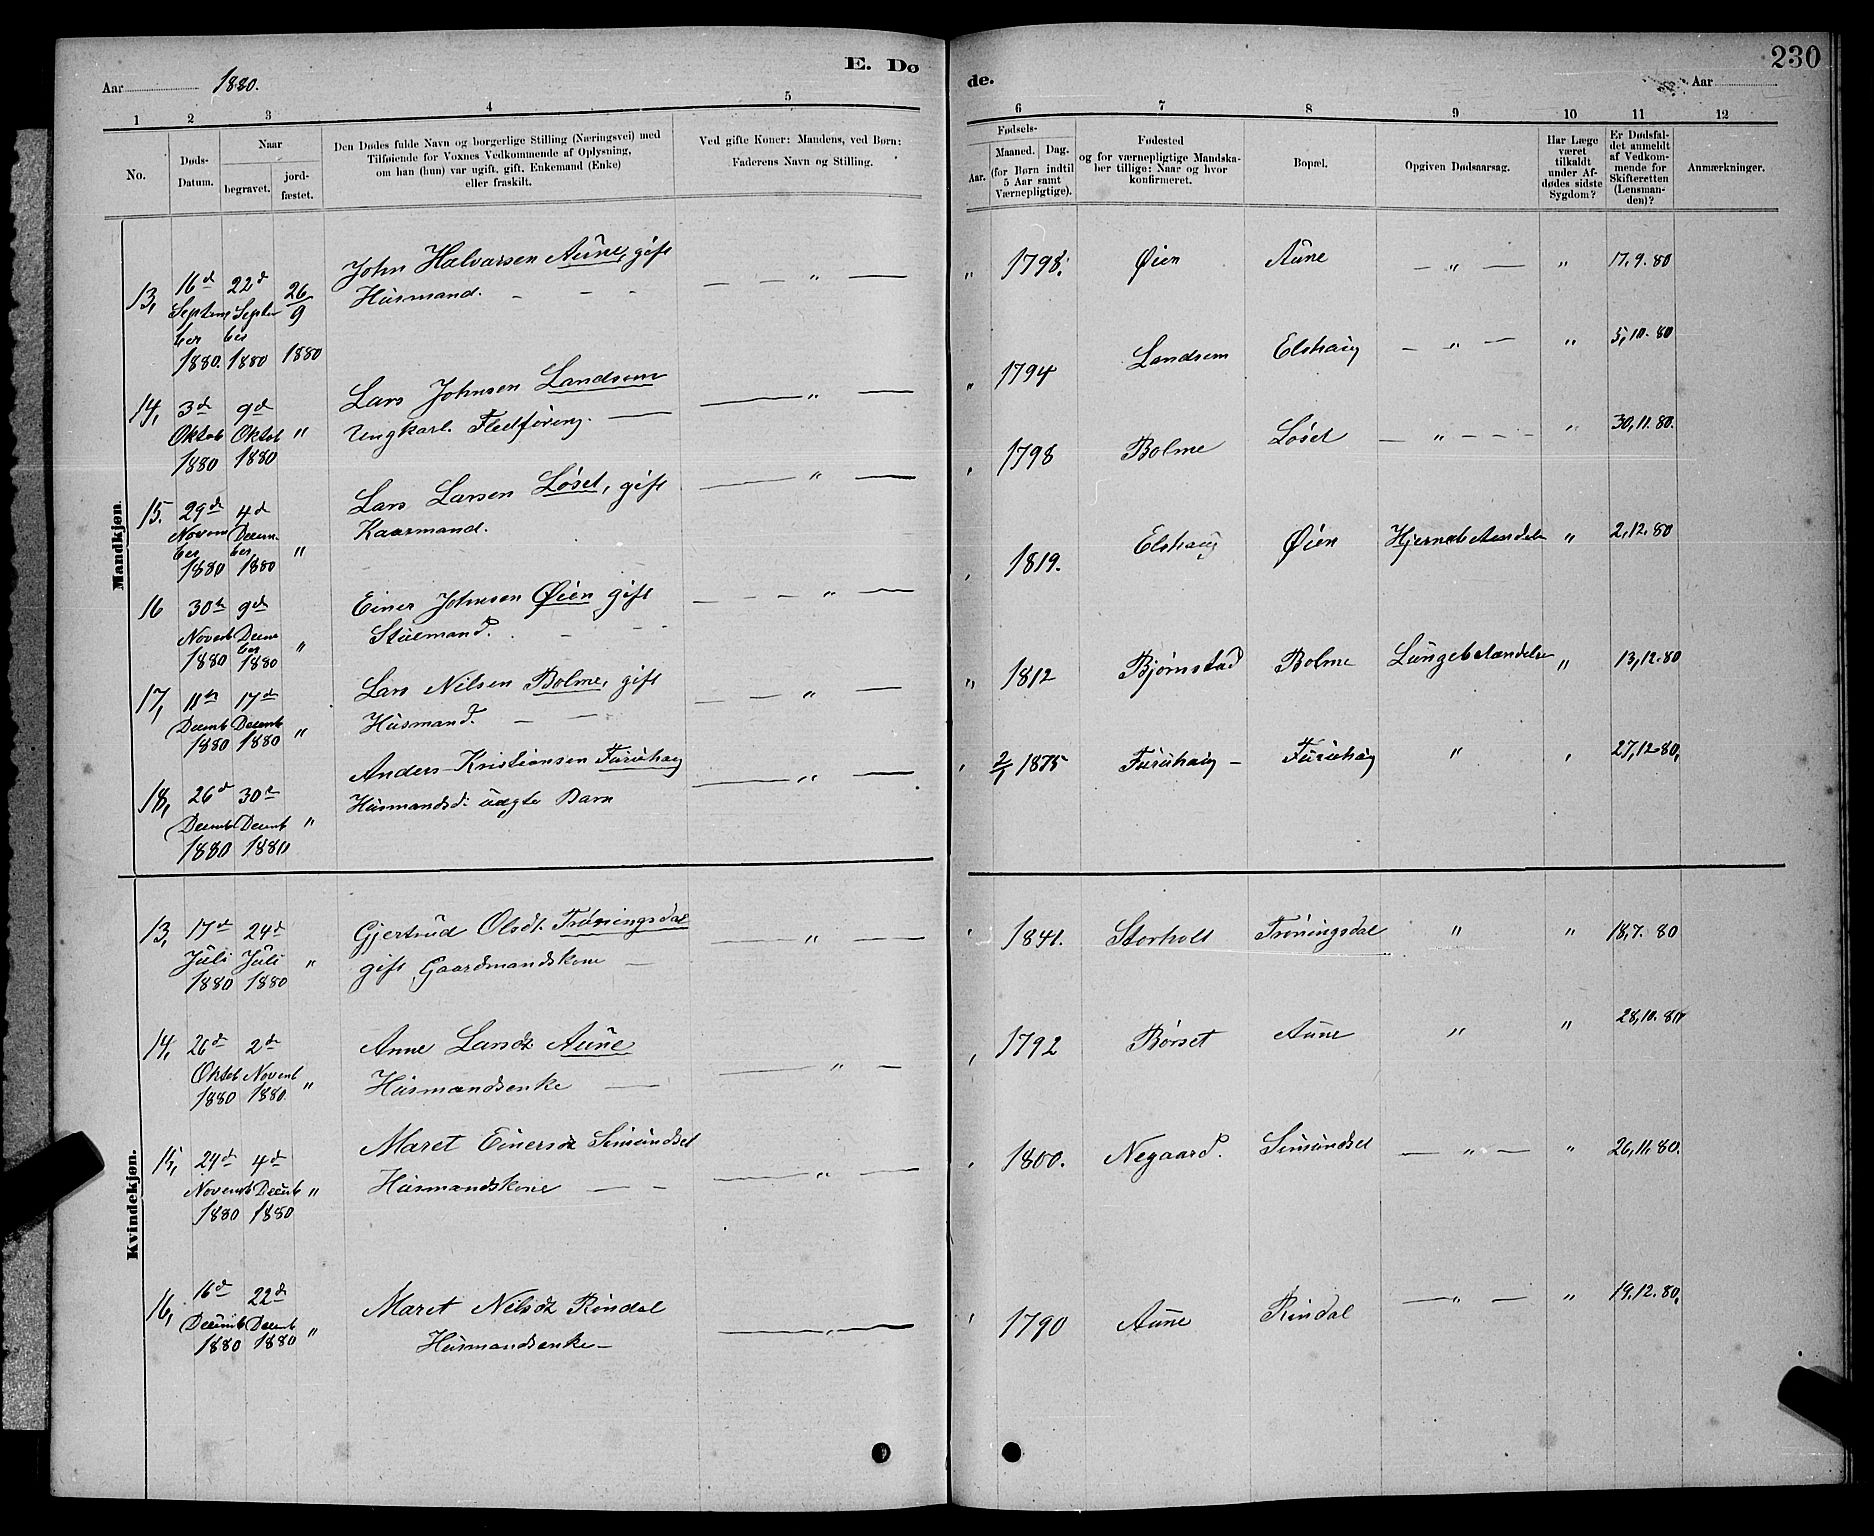 230
Aar 1880.
E. Dø
de.
Aar
1 2 3 4 5
6 7 8 9 10 11 12
No.
Døds-
Datum.
Naar
begravet.
jord-
fæstet.
Den Dødes fulde Navn og borgerlige Stilling (Næringsvei) med
Tilføiende for Voxnes Vedkommende af Oplysning,
om han (hun) var ugift, gift, Enkemand (Enke)
eller fraskilt.
Ved gifte Koner: Mandens, ved Børn:
Faderens Navn og Stilling.
Fødsels-
Aar.
Maaned. Dag.
(for Børn indtil
5 Aar samt
Værnepligtige).
Fødested
og for værnepligtige Mandska-
ber tillige: Naar og hvor
konfirmeret.
Bopæl.
Opgiven Dødsaarsag.
Har Læge
været
tilkaldt
under Af-
dødes sidste
Sygdom?
Er Dødsfal-
det anmeldt
af Vedkom-
mende for
Skifteretten
(Lensman-
den)?
Anmærkninger.
Mandkjøn.
13, 16d Septem ber 1880. 22d Septem ber 1880 26/9 1880
John Halvorsen Aune, gift
Husmand. - - - — — " —
" 1798. Øien Aune — " — " 17.9.80
14, 3d Oktob 1880 9d Oktob 1880 "
Lars Johnsen Landsem
Ungkarl. Fledføring. — — " —
" 1794 Landsem Elshaug — " — " 5,10.80
15. 29d Novem ber 1880 4d Decem- ber 1880 "
Lars Larsen Løset, gift
Kaarmand. — " —
" 1798 Bolme Løset — " — — — " 30,11.80.
16 30te Novemb 1880 9d Decem ber 1880 "
Einer Johnsen Øien gift
Stuemand. - - - — — — " —
" 1819. Elshaug Øien Hjernebetændelse " 2,12.80
17, 11te Decemb 1880 17d Decemb 1880 "
Lars Nilsen Bolme, gift
Husmand. — — — — " —
" 1812 Bjørnstad Bolme Lungebetændelse " 13,12.80
18, 26d Decemb 1880 30te Decemb 1880 "
Anders Kristiansen Furuhaug
Husmandsd: uægte Barn — " —
" 2/1 1875 Furuhaug - Furuhaug " " 27,12.80,
Kvindekjøn.
13, 17d Juli 1880 24d Juli 1880 "
Gjertrud Olsdt. Trøningsdal
gift Gaardmandskone — — " —
" 1841. Storholt Trøningsdal " " 18,7.80
14, 26d Oktob 1880 2d Novemb 1880. "
Anne Larsdt Aune
Husmandsenke — — " —
" 1792 Børset Aune " " 28,10.80
15, 24d Novemb 1880 4d Decemb 1880 "
Maret Einersdt Simundset
Husmandskone — — — " —
" 1800. Negaard. Simundset — " — " 26,11.80.
16, 16d Decemb 1880 22d Decemb 1880 "
Maret Nilsdt Rindal
Husmandsenke - — " —
" 1790 Aune Rindal — " — " 19.12.80,